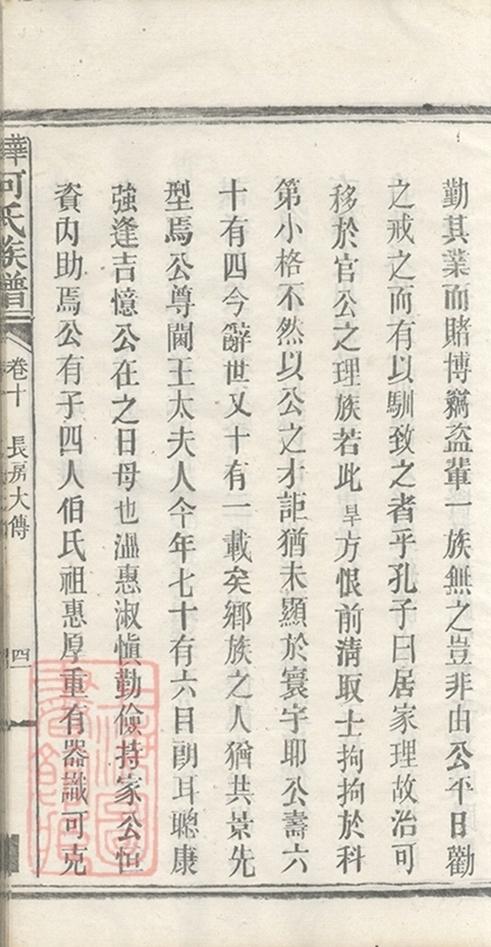 勤其業而賭博竊盜輩一族無之豈非由公平日勸
之戒之而有以馴致之者乎孔子曰居家理故治可
移於官公之理族若此旱方恨前清取士拘拘於科
第小格不然以公之才詎猶未顯於寰宇耶公壽六
十有四今辭世又十有一載矣鄉族之人猶共景先
型焉公尊閫王太夫人今年七十有六目朗耳聰康
強逢吉憶公在之日母也溫惠淑慎勤儉持家公恒
資內助焉公有子四人伯氏祖惠厚重有器識可克
何氏族譜 卷十 長房大傳 四